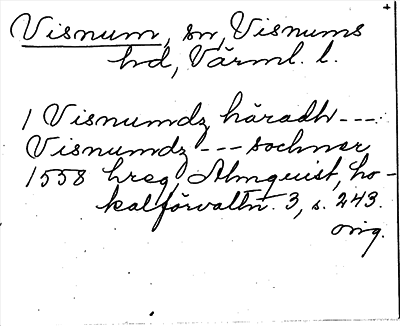 Visnum, sn, Visnums
hd, Värml. l.
1 Visnumdz häradh ---
Visnumdz --- sochner
1558 hreg, Almquist, Lo-
kalförvaltn. 3, s. 243.
orig.